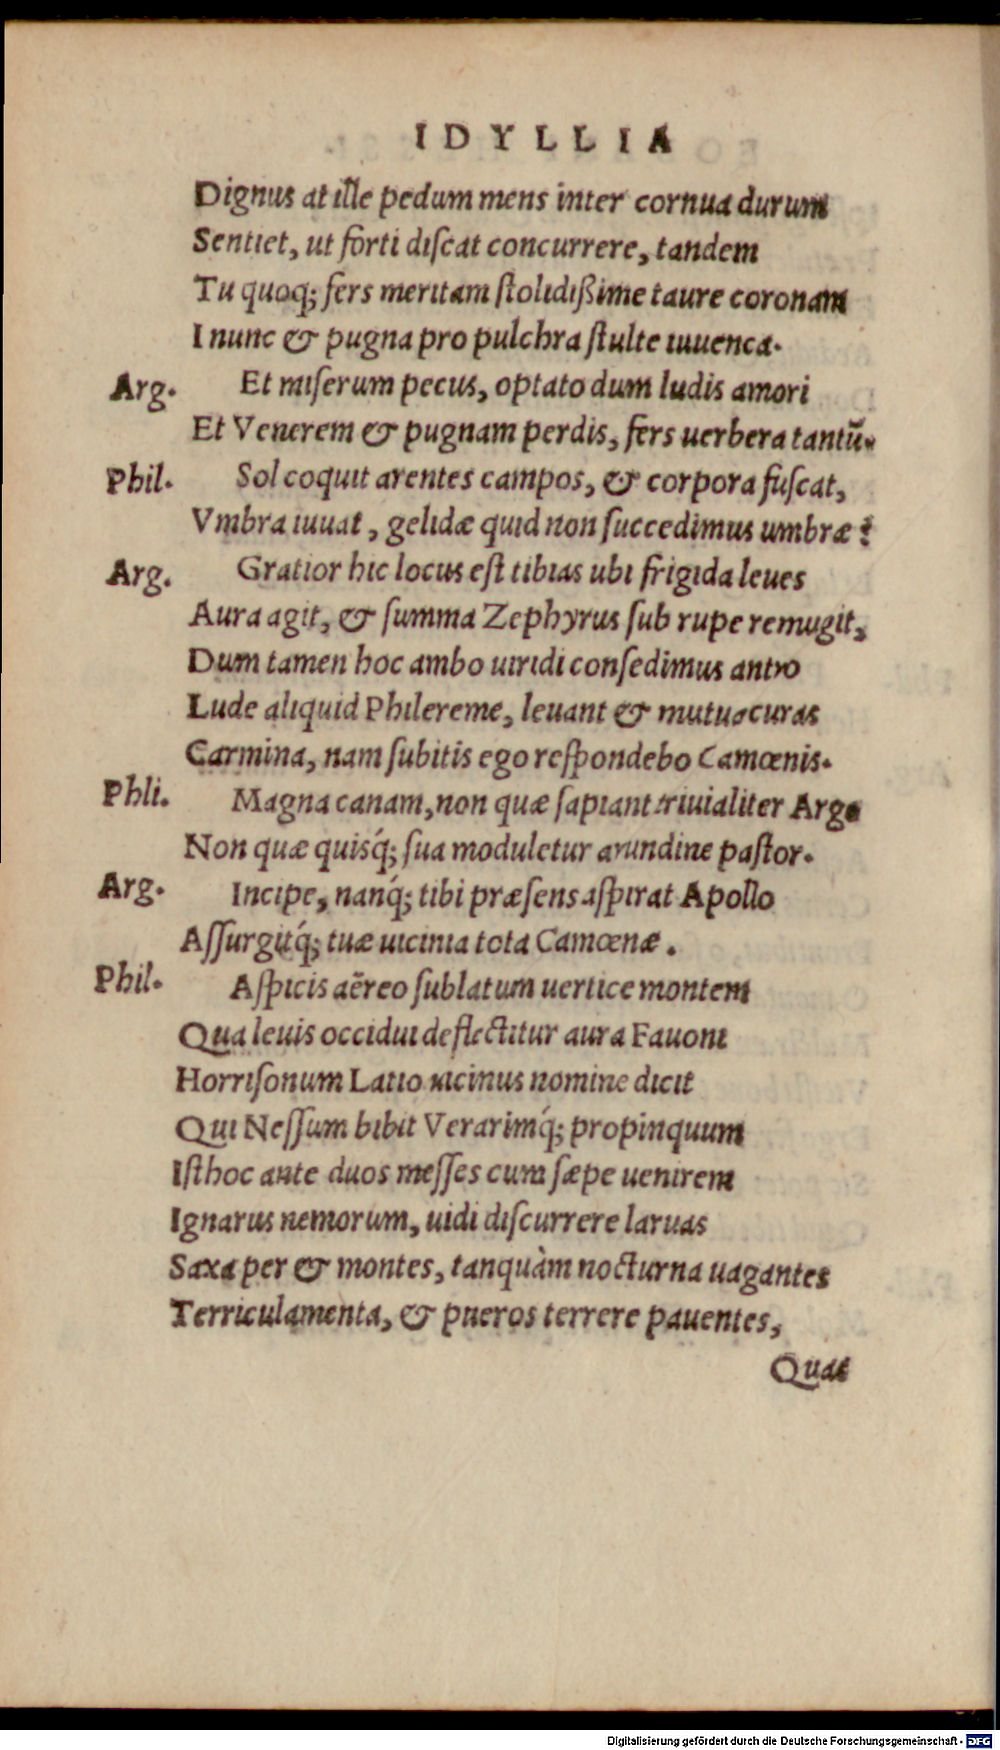 IDYLLIA
Dignus at ille pedum mens inter cornua durum
Sentiet, ut forti diſcat concurrere, tandem
Tu quoq; fers meritam ſtolidißime taure coronam
I nunc & pugna pro pulchra ſtulte iuuenca.
Arg. Et miſerum pecus, optato dum ludis amori
Et Venerem & pugnam perdis, fers uerbera tantũ.
Phil. Sol coquit arentes campos, & corpora fuſcat,
Vmbra iuuat, gelidæ quid non ſuccedimus umbræ?
Arg. Gratior hic locus eſt tibias ubi frigida leues
Aura agit, & ſumma Zephyrus ſub rupe remugit,
Dum tamen hoc ambo uiridi conſedimus antro
Lude aliquid Philereme, leuant & mutua curas
Carmina, nam ſubitis ego reſpondebo Camœnis.
Phli. Magna canam, non quæ ſapiant triuialiter Arge
Non quæ quisq́; ſua moduletur arundine paſtor.
Arg. Incipe, nanq́; tibi præſens aſpirat Apollo
Aſſurgitq́; tuæ uicinia tota Camœnæ.
Phil. Aſpicis aëreo ſublatum uertice montem
Qua leuis occidui deflectitur aura Fauoni
Horriſonum Latio uicinus nomine dicit
Qui Neſſum bibit Verarimq́; propinquum
Iſthoc ante duos meſſes cum ſæpe uenirem
Ignarus nemorum, uidi diſcurrere laruas
Saxa per & montes, tanquàm nocturna uagantes
Terriculamenta, & pueros terrere pauentes,
Quas
Digitalisierung gefördert durch die Deutsche Forschungsgemeinschaft - DFG